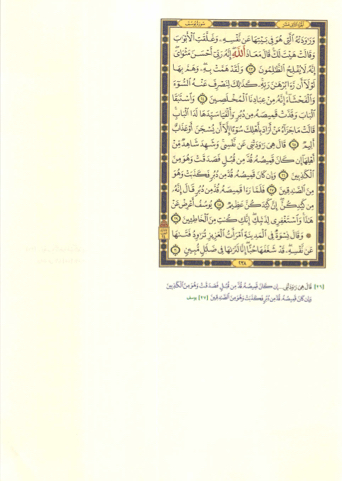 الجزء الثاني عشر سورة يوسف
وَرَٰوَدَتْهُ ٱلَّتِى هُوَ فِى بَيْتِهَا عَن نَّفْسِهِۦ وَغَلَّقَتِ ٱلْأَبْوَٰبَ
وَقَالَتْ هَيْتَ لَكَ قَالَ مَعَاذَ ٱللَّهِ إِنَّهُۥ رَبِّىٓ أَحْسَنَ مَثْوَاىَ
إِنَّهُۥ لَا يُفْلِحُ ٱلظَّٰلِمُونَ ٢٣ وَلَقَدْ هَمَّتْ بِهِۦ وَهَمَّ بِهَا
لَوْلَآ أَن رَّءَا بُرْهَٰنَ رَبِّهِۦ كَذَٰلِكَ لِنَصْرِفَ عَنْهُ ٱلسُّوٓءَ
وَٱلْفَحْشَآءَ إِنَّهُۥ مِنْ عِبَادِنَا ٱلْمُخْلَصِينَ ٢٤ وَٱسْتَبَقَا
ٱلْبَابَ وَقَدَّتْ قَمِيصَهُۥ مِن دُبُرٍ وَأَلْفَيَا سَيِّدَهَا لَدَا ٱلْبَابِ
قَالَتْ مَا جَزَآءُ مَنْ أَرَادَ بِأَهْلِكَ سُوٓءًا إِلَّآ أَن يُسْجَنَ أَوْ عَذَابٌ
أَلِيمٌ ٢٥ قَالَ هِىَ رَٰوَدَتْنِى عَن نَّفْسِى وَشَهِدَ شَاهِدٌ مِّنْ
أَهْلِهَآ إِن كَانَ قَمِيصُهُۥ قُدَّ مِن قُبُلٍ فَصَدَقَتْ وَهُوَ مِنَ
ٱلْكَٰذِبِينَ ٢٦ وَإِن كَانَ قَمِيصُهُۥ قُدَّ مِن دُبُرٍ فَكَذَبَتْ وَهُوَ
مِنَ ٱلصَّٰدِقِينَ ٢٧ فَلَمَّا رَءَا قَمِيصَهُۥ قُدَّ مِن دُبُرٍ قَالَ إِنَّهُۥ
مِن كَيْدِكُنَّ إِنَّ كَيْدَكُنَّ عَظِيمٌ ٢٨ يُوسُفُ أَعْرِضْ عَنْ
هَٰذَا وَٱسْتَغْفِرِى لِذَنۢبِكِ إِنَّكِ كُنتِ مِنَ ٱلْخَاطِـِٔينَ ٢٩
۞ وَقَالَ نِسْوَةٌ فِى ٱلْمَدِينَةِ ٱمْرَأَتُ ٱلْعَزِيزِ تُرَٰوِدُ فَتَىٰهَا
عَن نَّفْسِهِۦ قَدْ شَغَفَهَا حُبًّا إِنَّا لَنَرَىٰهَا فِى ضَلَٰلٍ مُّبِينٍ ٣٠
٢٣٨
(٢٦) قَالَ هِيَ رَاوَدَتْنِي ... إِن كَانَ قَمِيصُهُ قُدَّ مِن قُبُلٍ فَصَدَقَتْ وَهُوَ مِنَ الْكَاذِبِينَ
وَإِن كَانَ قَمِيصُهُ قُدَّ مِن دُبُرٍ فَكَذَبَتْ وَهُوَ مِنَ الصَّادِقِينَ (٢٧) يوسف